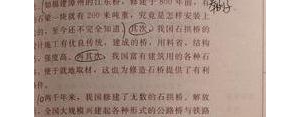 如福建漳州的江东桥，修建于800年前，有
石梁一块就有200来吨重，究竟是怎样安装上
的，至今还不完全知道）其次，我国石拱桥的
计施工有优良传统，建成的桥，用料省，结构
，强度高。再其次，我国富有建筑用的各种石
，便于就地取材，这也为修造石桥提供了有利
件。
两千年来，我国修建了无数的石拱桥。解放
全国大规模兴建起各种形式的公路桥与铁路